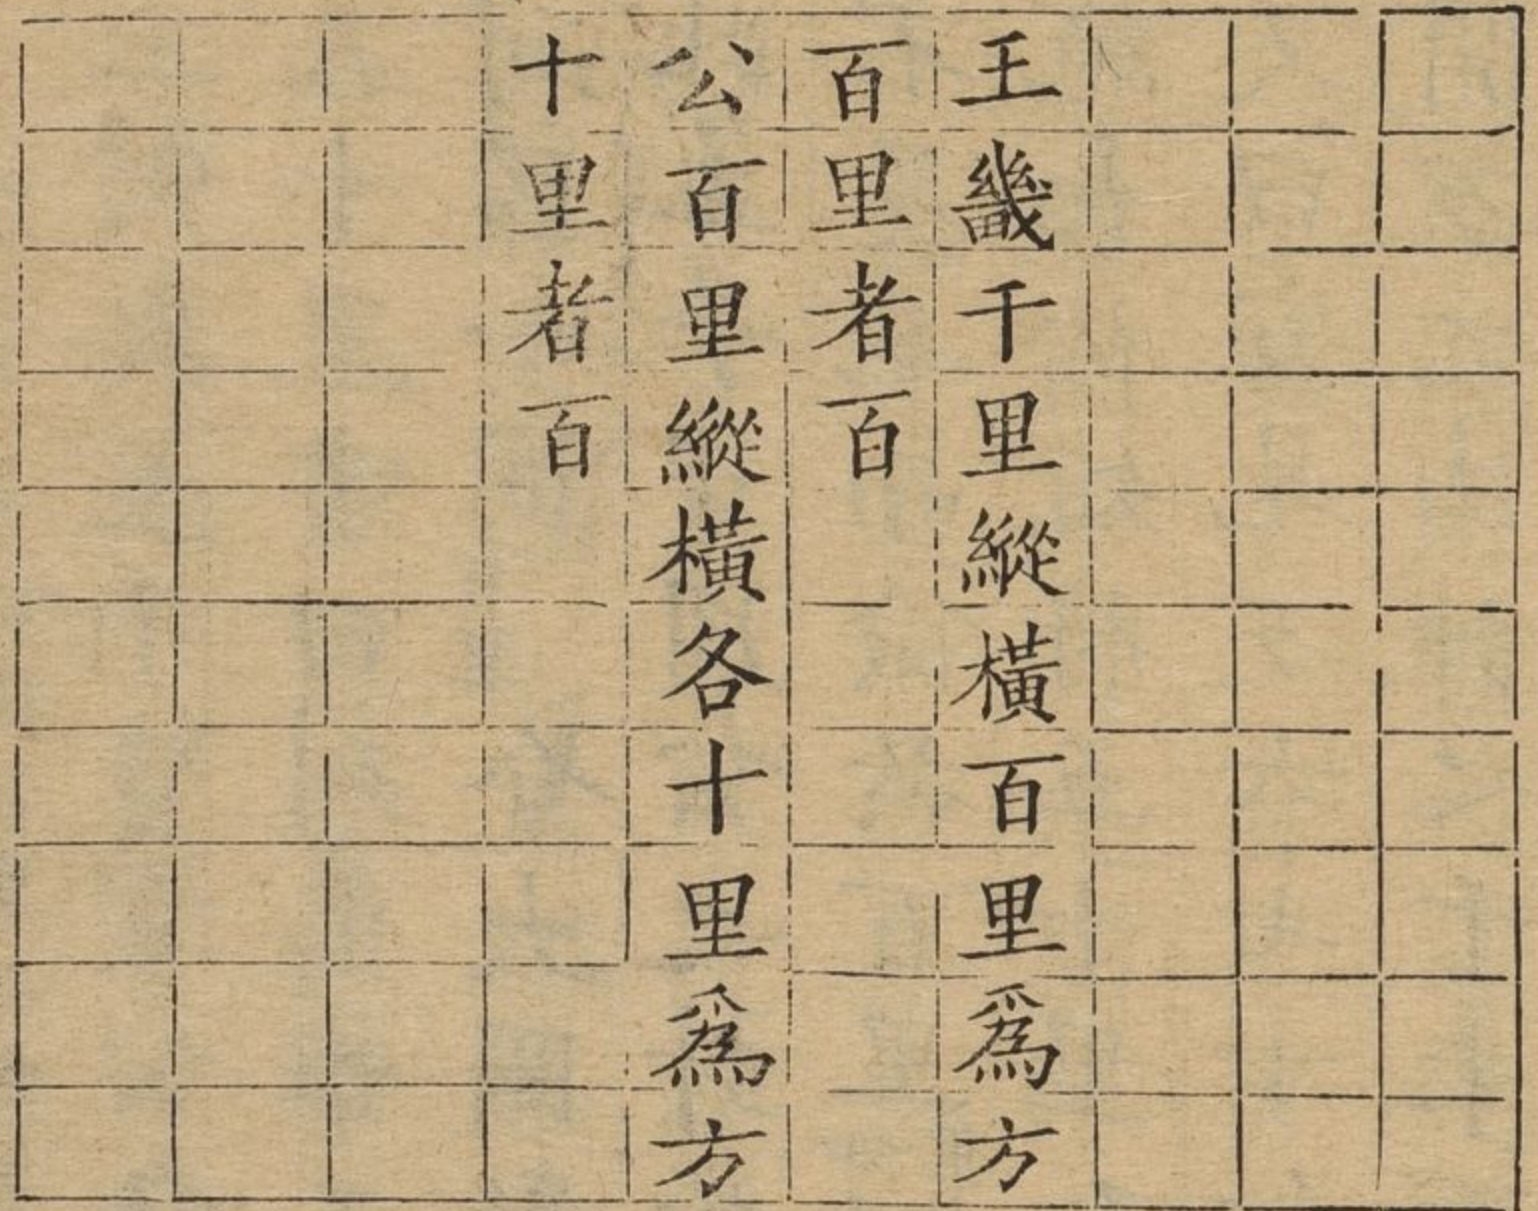 王畿千里縱橫百里爲方
百里者百
公百里縱橫各十里爲方
十里者百